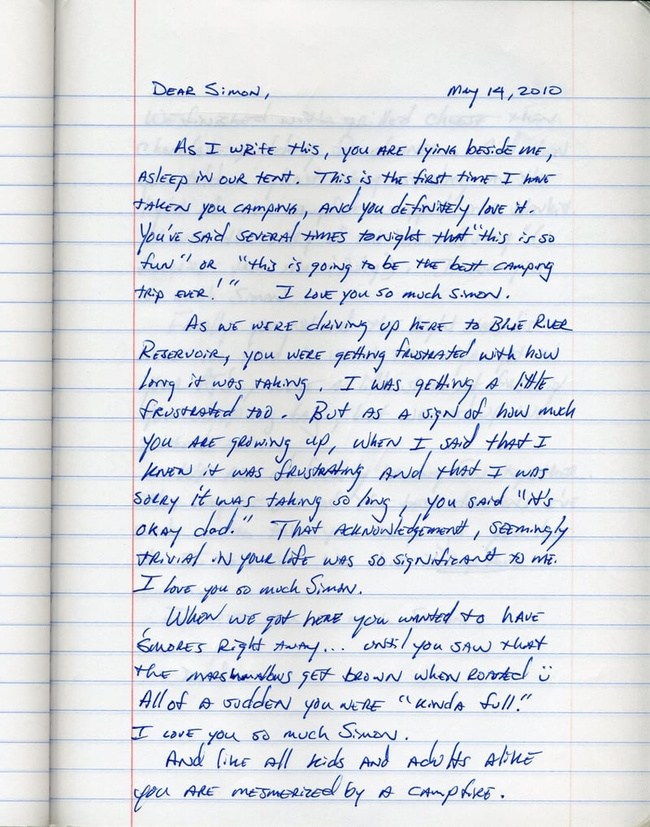 Dear Simon, May 14, 2010
As I write this, you are lying beside me,
asleep in our tent. This is the first time I have
taken you camping, and you definitely love it.
You've said several times tonight that "this is so
fun" or "this is going to be the best camping
trip ever!" I love you so much Simon.
As we were driving up here to Blue River
Reservoir, you were getting frustrated with how
long it was taking. I was getting a little
frustrated too. But as a sign of how much
you are growing up, when I said that I
knew it was frustrating and that I was
sorry it was taking so long, you said "it's
okay dad." That acknowledgement, seemingly
trivial in your life was so significant to me.
I love you so much Simon.
When we got here you wanted to have
S'mores right away... until you saw that
the marshmallows get brown when roasted ü
All of a sudden you were "kinda full."
I love you so much Simon.
And like all kids and adults alike
you are mesmerized by a campfire.